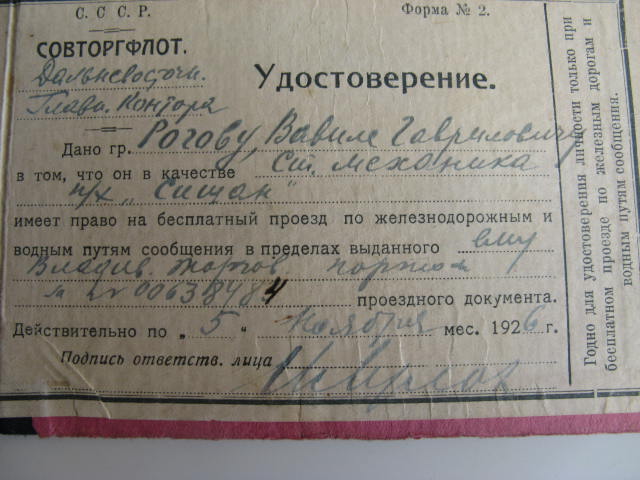 С. С. С. Р.
Форма № 2.
СОВТОРГФЛОТ.
Дальневосточн.
Главн. Контора
Удостоверение.
Дано гр. Рогову, Вавиле Гавриловичу
в том, что он в качестве ст. механика
п/х „Сишан"
имеет право на бесплатный проезд по железнодорожным и
водным путям сообщения в пределах выданного ему
Владив. торгов. портом
№ 00638484 проездного документа.
Действительно по „5" Ноября мес. 1926 г.
Подпись ответств. лица
Годно для удостоверения личности только при
бесплатном проезде по железным дорогам и
водным путям сообщения.